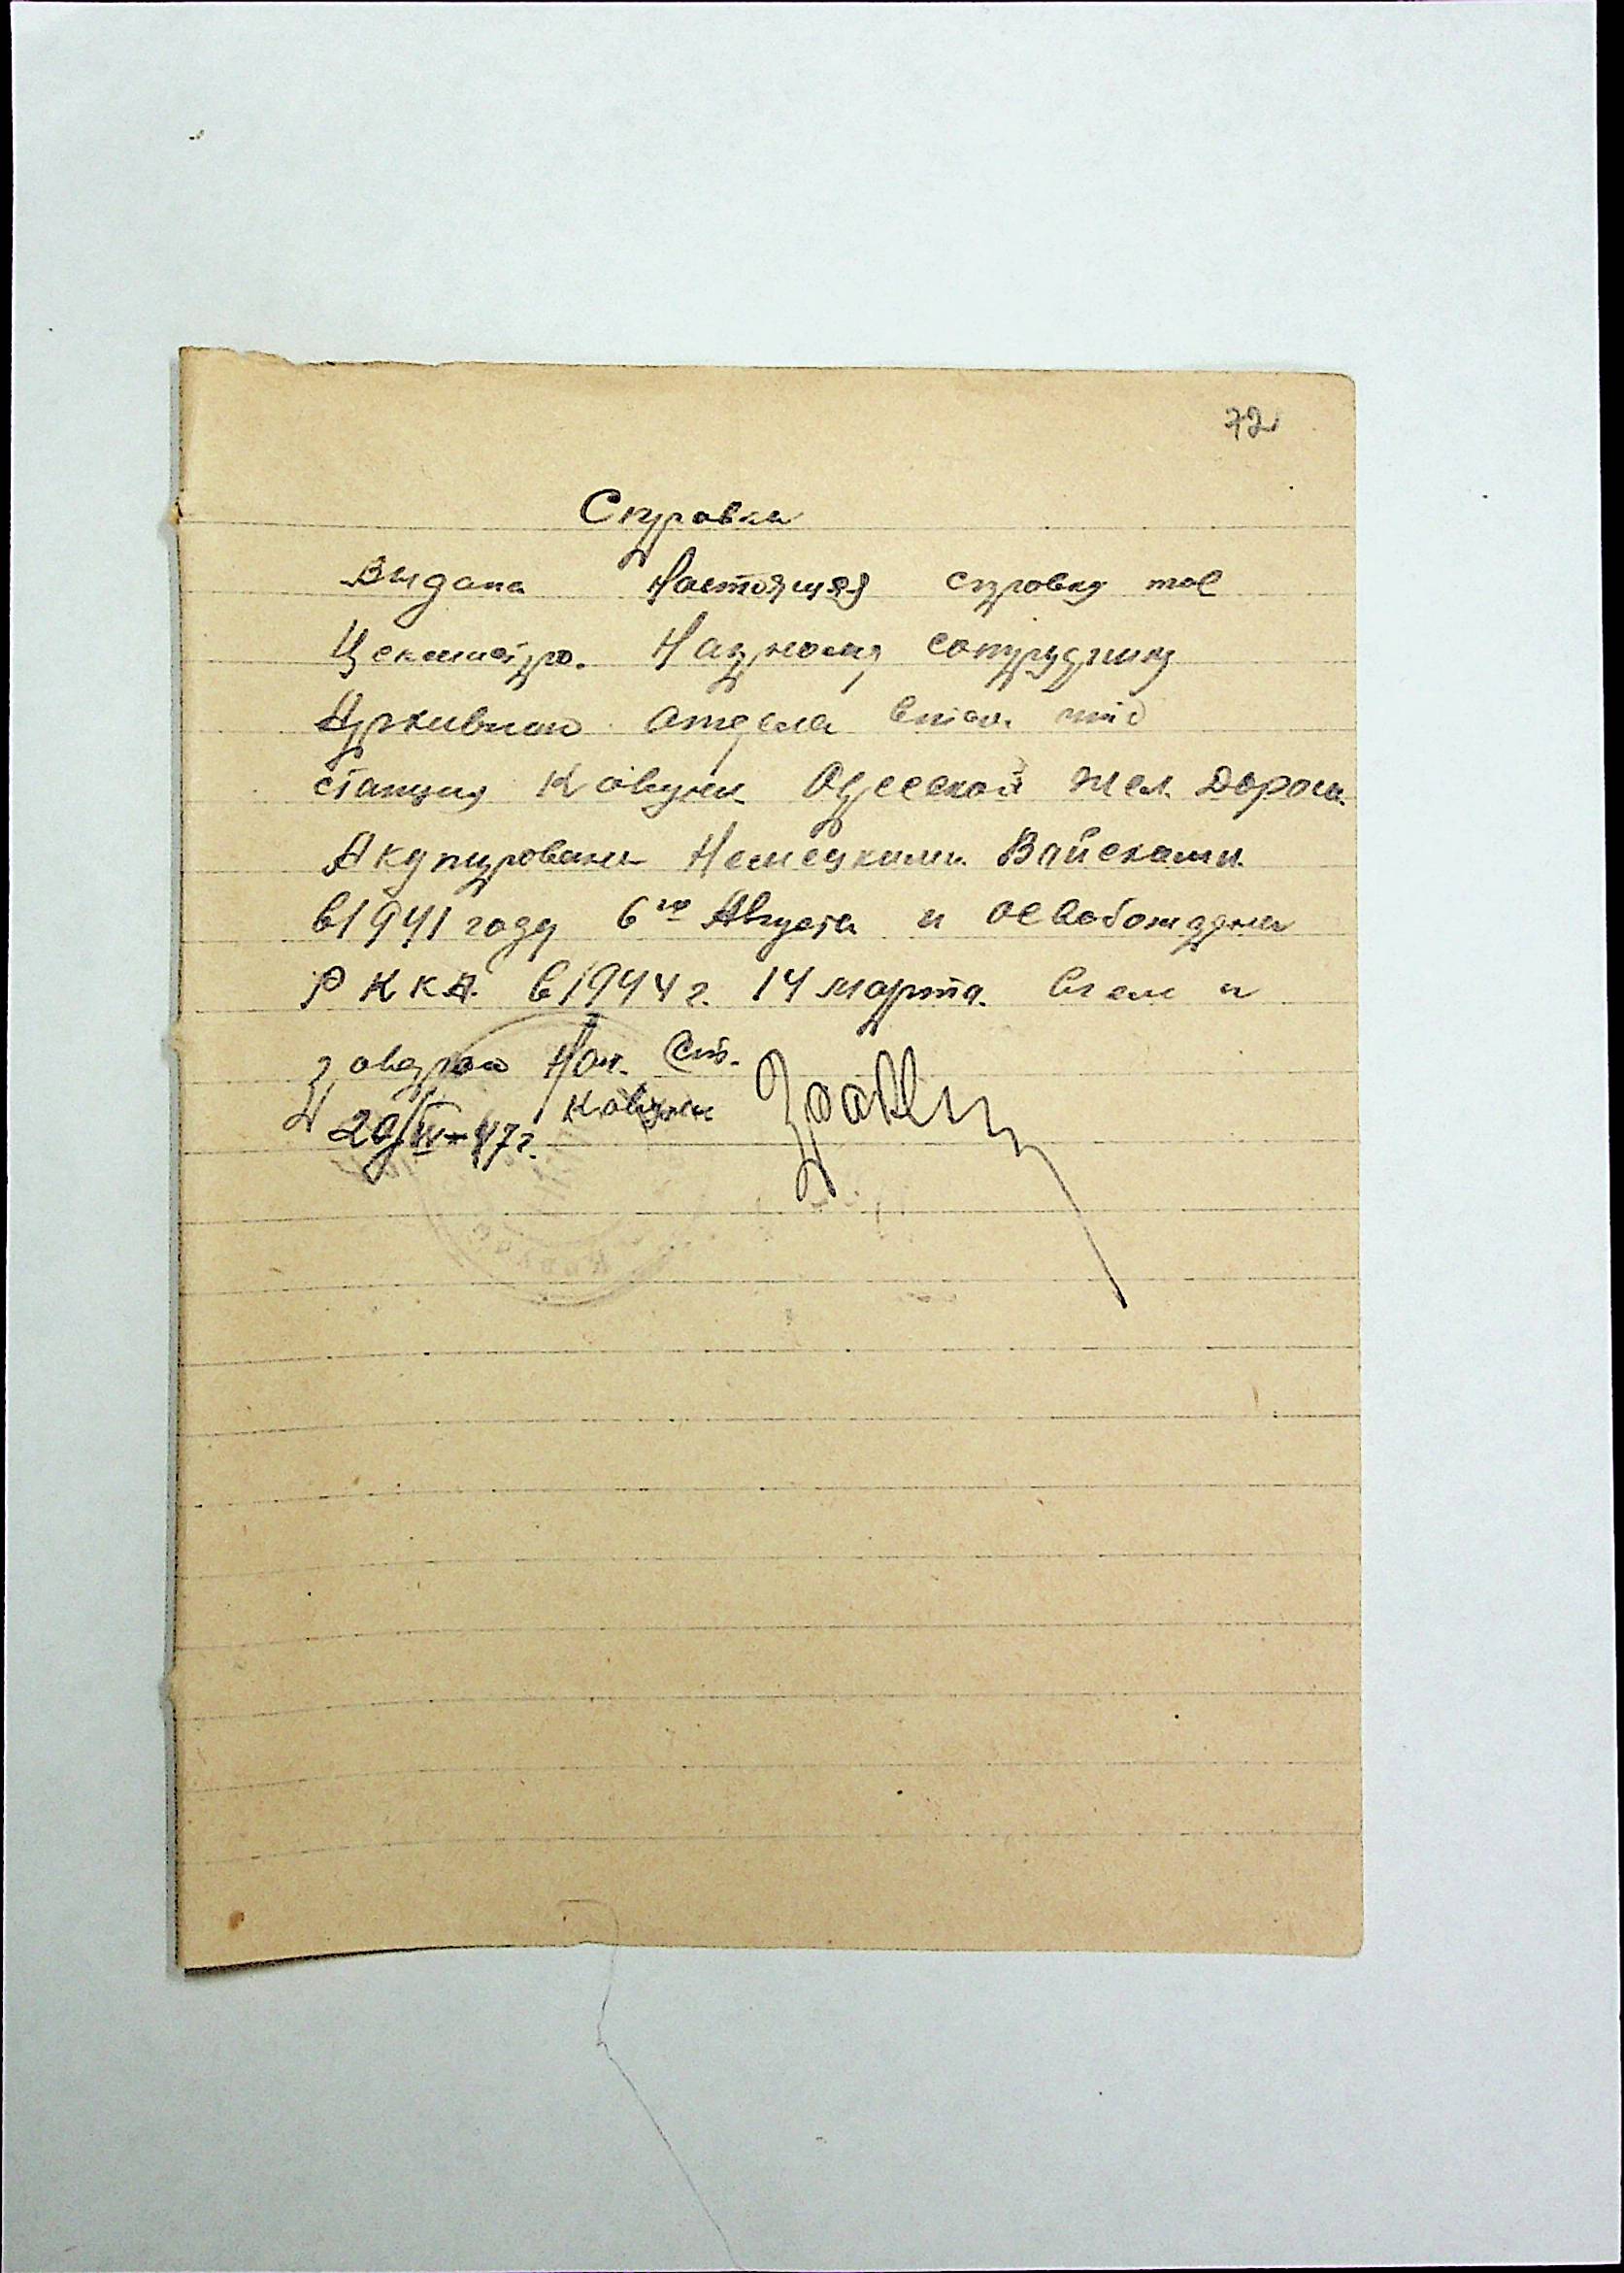 72
Справка
Выдана Настоящая справка тов
Научному сотруднику
Архивного отдела в том что
станция Кавуны Одесской Жел. Дороги
Акупирована Немецкими Вайсками
в 1941 году 6го Августа и освобождена
РККА. в 1944 г. 14 марта. в чем и
Нач. Ст.
Кавуны
20/IV-47 г.